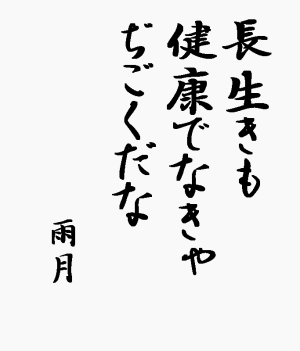 長生きも
健康でなきゃ
ぢごくだな
雨月